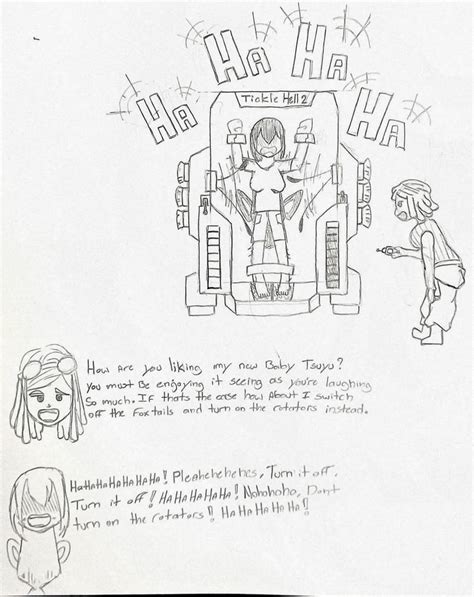 Ha Ha Ha Ha Ha
Tickle Hell 2
How Are you liking my new Baby Tsuyu?
You must Be enjoying it seeing as you're laughing
So much. If thats the case how About I switch
off the Foxtails and turn on the rotators instead.
HaHaHaHaHaHaHa! Pleahehehehes, Turn it off.
Turn it off! HAHAHAHAHA! Nohohoho, Dont
turn on the rotators!! HA HA HA HA HA!!